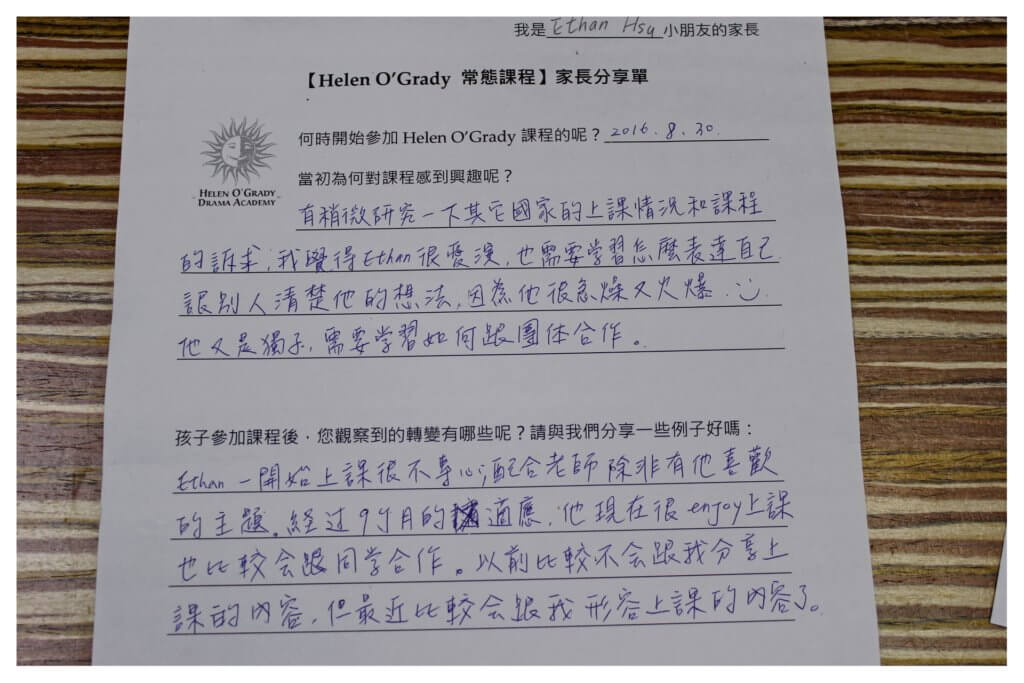 我是 Ethan Hsu 小朋友的家長
【Helen O'Grady 常態課程】家長分享單
HELEN O'GRADY
DRAMA ACADEMY
何時開始參加 Helen O'Grady 課程的呢？2016.8.30.
當初為何對課程感到興趣呢？
有稍微研究一下其它國家的上課情況和課程
的訴求，我覺得Ethan很愛演，也需要学習怎麼表達自己
讓別人清楚他的想法，因為他很急燥又火爆.
他又是獨子，需要学習如何跟團体合作。
孩子參加課程後，您觀察到的轉變有哪些呢？請與我們分享一些例子好嗎：
Ethan 一開始上課很不專心，配合老師除非有他喜歡
的主題。経过9个月的適應，他現在很enjoy上課
也比較会跟同学合作。以前比較不会跟我分享上
課的內容，但最近比較会跟我形容上課的內容了。